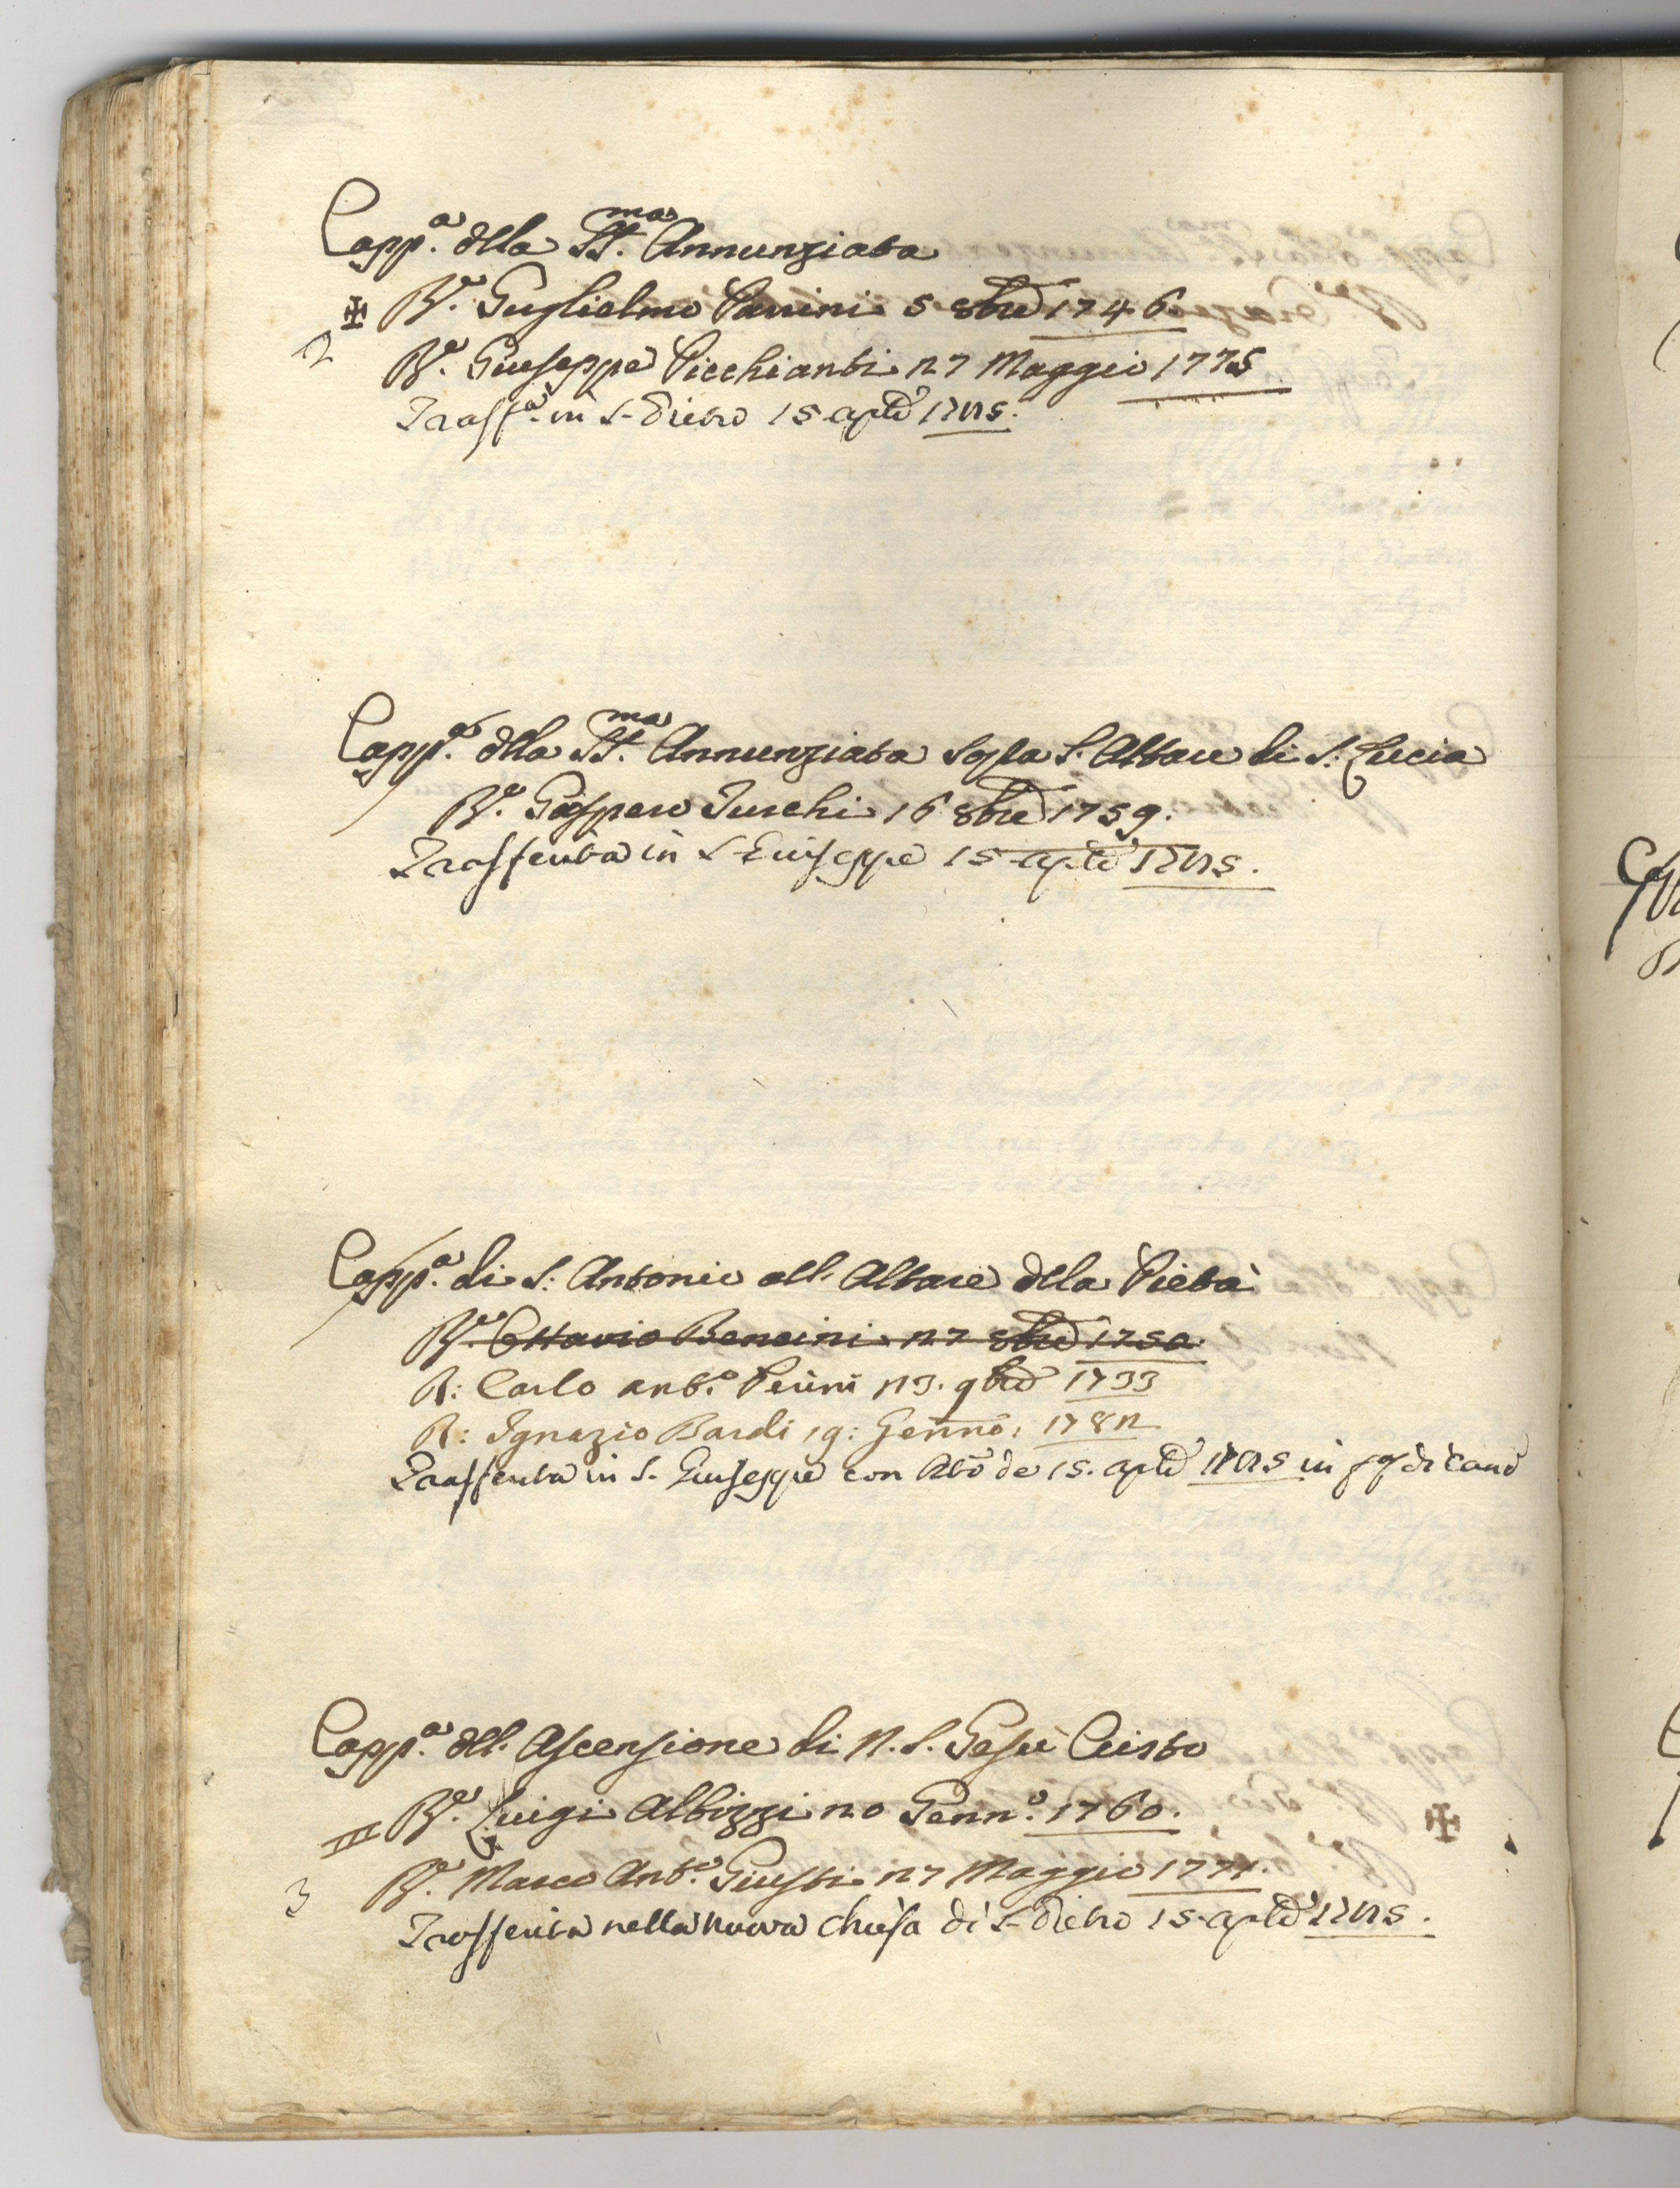 Capp.a della SS.ma Annunziata
R.e Guglielmo Panini 5 8bre 1746.
2 R.e Giuseppe Picchianti 27 Maggio 1775
Trasf.a in S. Pietro 15 aple 1785.
Capp.a della SS.ma Annunziata sop.a l'Altare di S. Lucia
R.e Gaspero Turchi 16 8bre 1759.
Trasferita in S. Giuseppe 15 aple 1785.
Capp.a di S. Antonio all'Altare della Pietà
R.e Ottavio Bencini 27 8bre 1750
R: Carlo Ant.o Perini 23. 9bre 1733
R: Ignazio Bardi 19: Genno: 1782
Trasferita in S. Giuseppe con de 15. aple 1785 in
Capp.a dell'Ascensione di N. S. Gesù Cristo
III R.e Luigi Albizzi 20 Genn.o 1760.
3 R.e Marco Ant.o Giusti 27 Maggio 1771.
Trasferita nella nuova chiesa di S. Pietro 15 aple 1785.